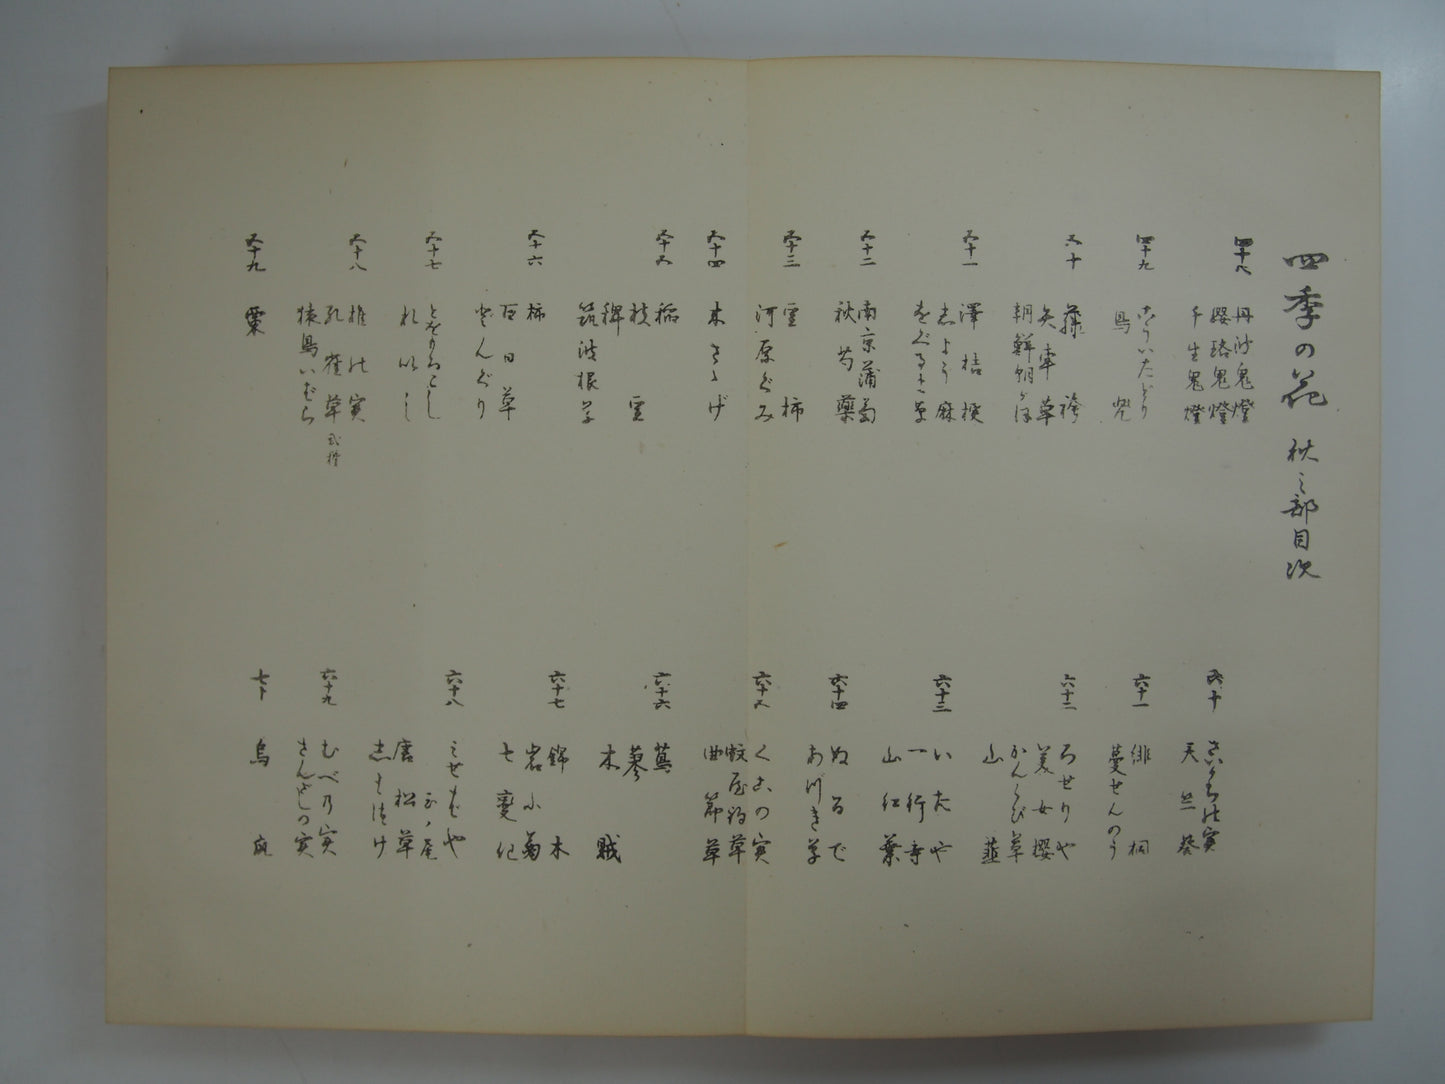 四季の花 秋之部目次
四十八
丹波鬼燈
瓔珞鬼燈
千生鬼燈
四十九
鳥兜
五十
藤袴
矢車草
朝鮮朝がほ
五十一
澤桔梗
志よう麻
五十二
南京蒲萄
秋芍藥
五十三
豆柿
河原ぐみ
五十四
木さゝげ
五十五
稲
枝豆
稗
筑波根草
五十六
柿
百日草
どんぐり
五十七
とをもろこし
れいし
五十八
椎の実
孔雀草 弐種
猿鳥いばら
五十九
粟
六十
さいかちの実
天竺葵
六十一
緋桐
蔓せんのう
六十二
ろせりや
美女櫻
かんくび草
山韮
六十三
いたや
一行寺
山紅葉
六十四
ぬるで
あづき草
六十五
くこの実
蚊屋釣草
田節草
六十六
蔦
蓼
木賊
六十七
錦木
岩小菊
七変化
六十八
みせばや
虎ノ尾
唐松草
六十九
むべ乃実
さんざしの実
七十
烏瓜